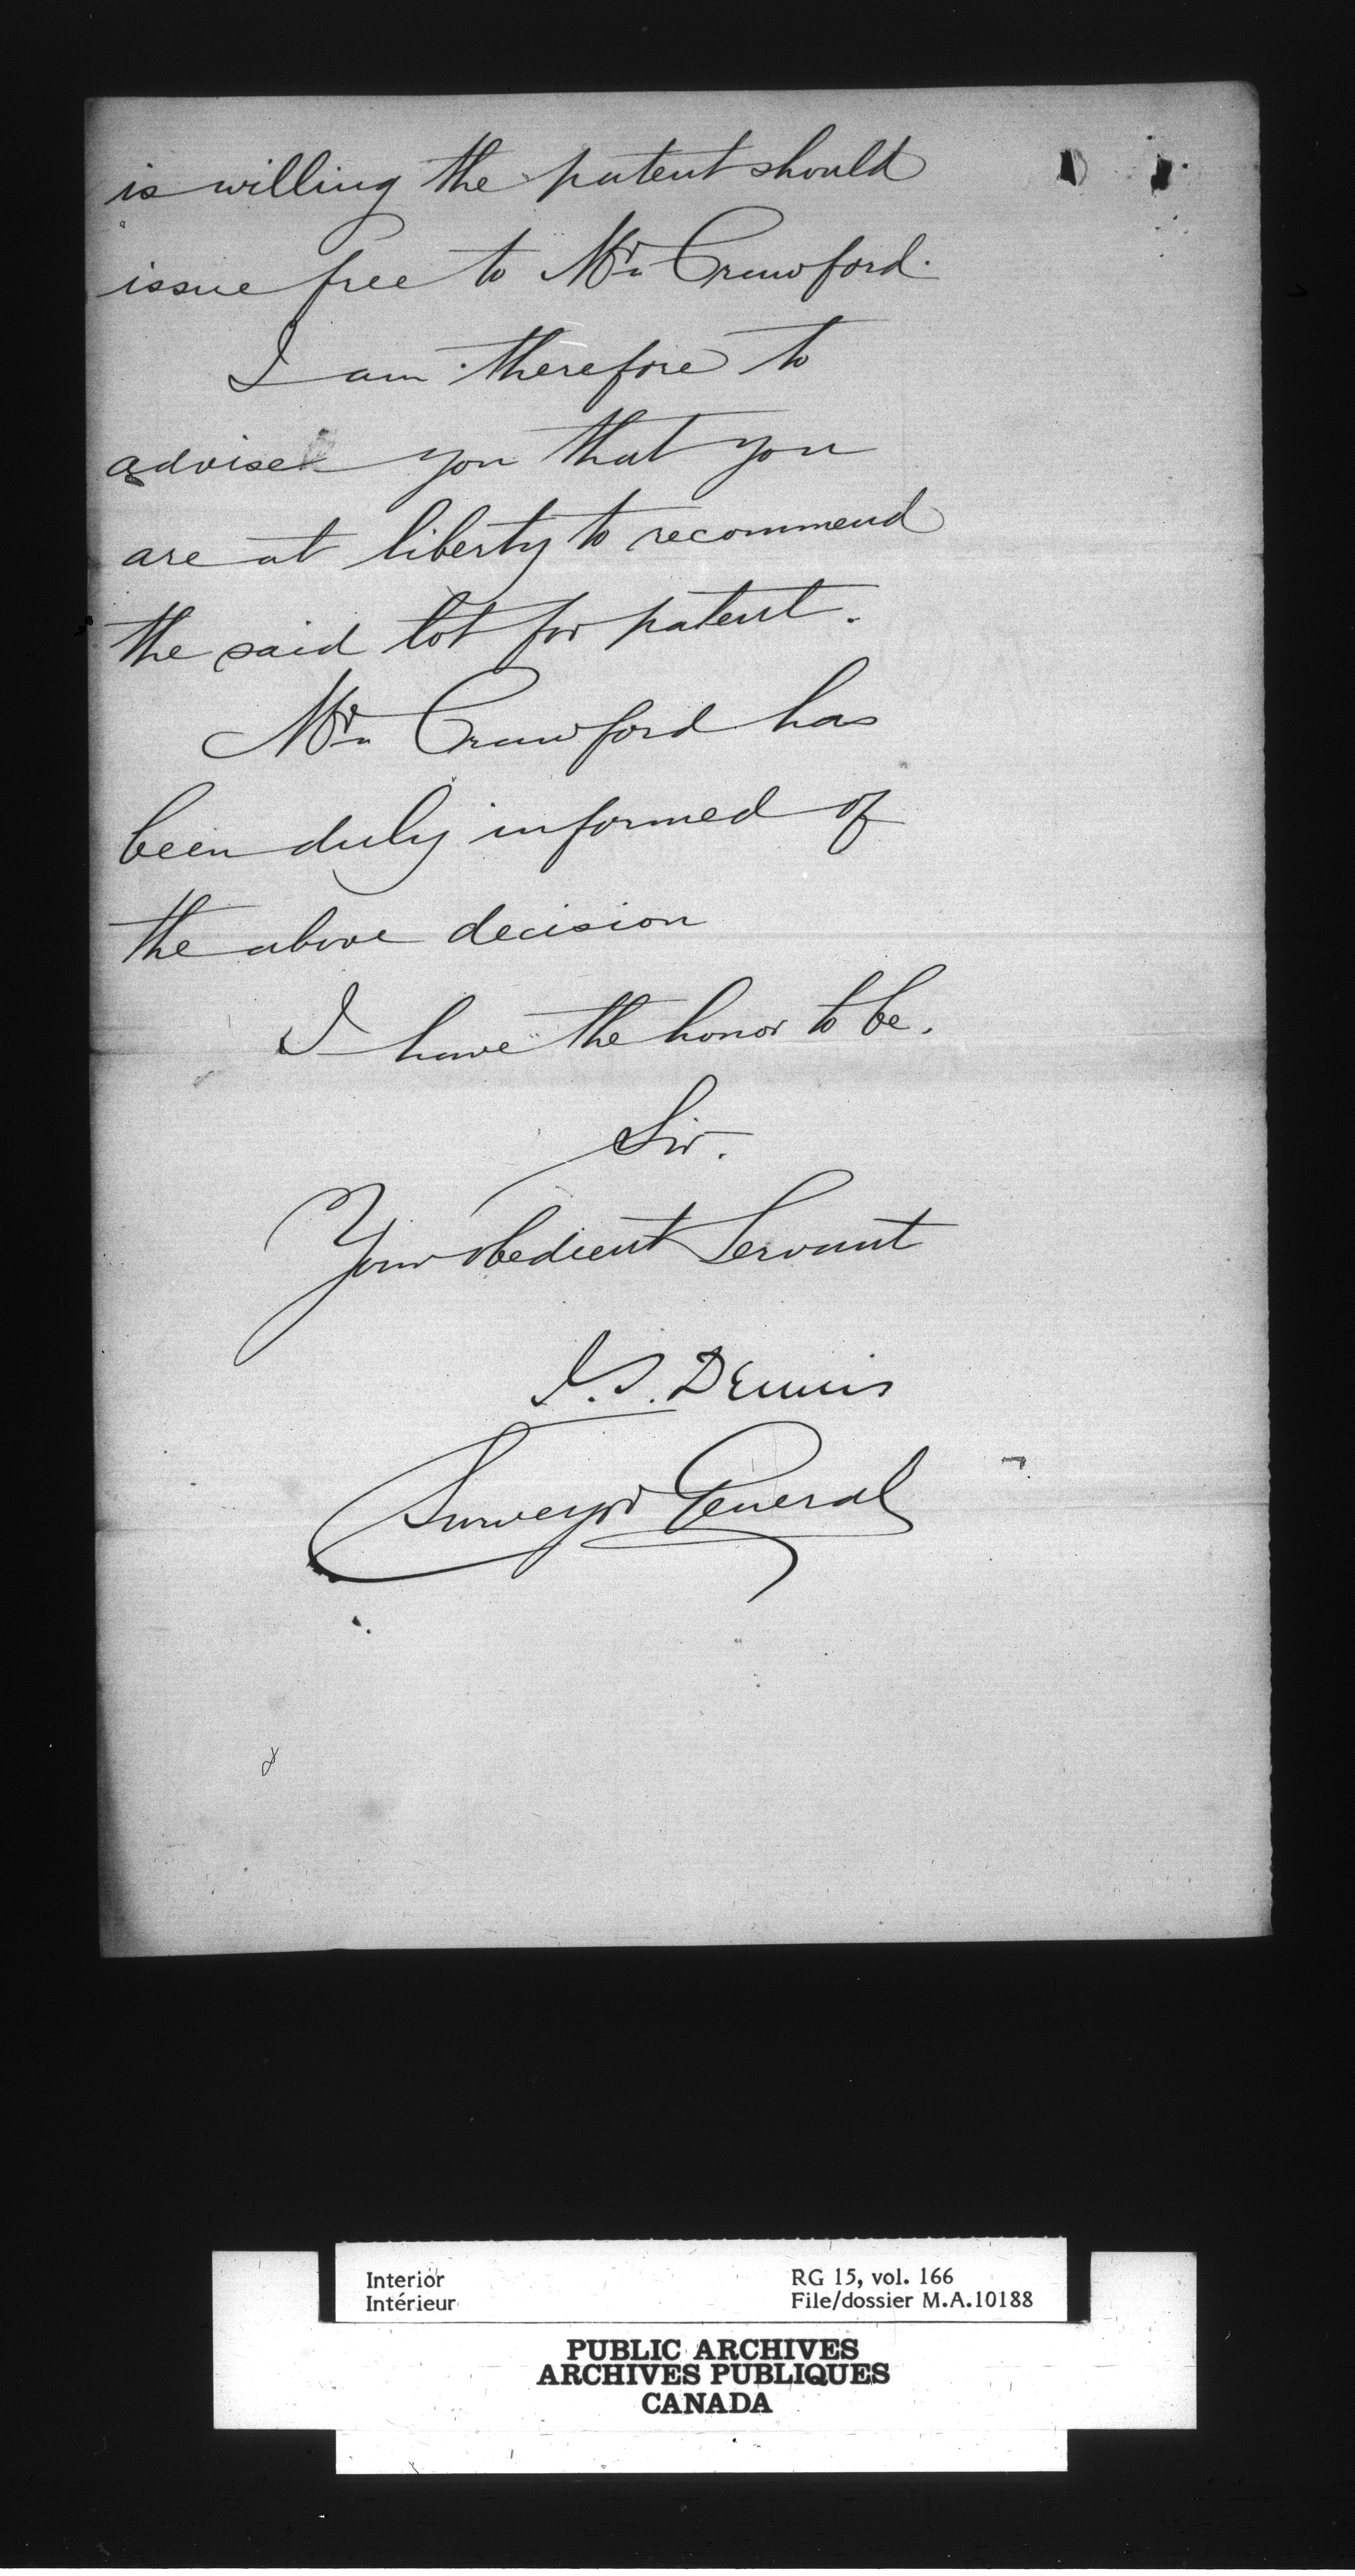 is willing the patent should
issue free to Mr. Crawford.
I am therefore to
advise you that you
are at liberty to recommend
the said lot for patent.
Mr. Crawford has
been duly informed of
the above decision
I have the honor to be.
Sir.
Your obedient Servant
J.S. Dennis
Surveyor General
Interior
Intérieur
RG 15, vol. 166
File/dossier M.A.10188
PUBLIC ARCHIVES
ARCHIVES PUBLIQUES
CANADA